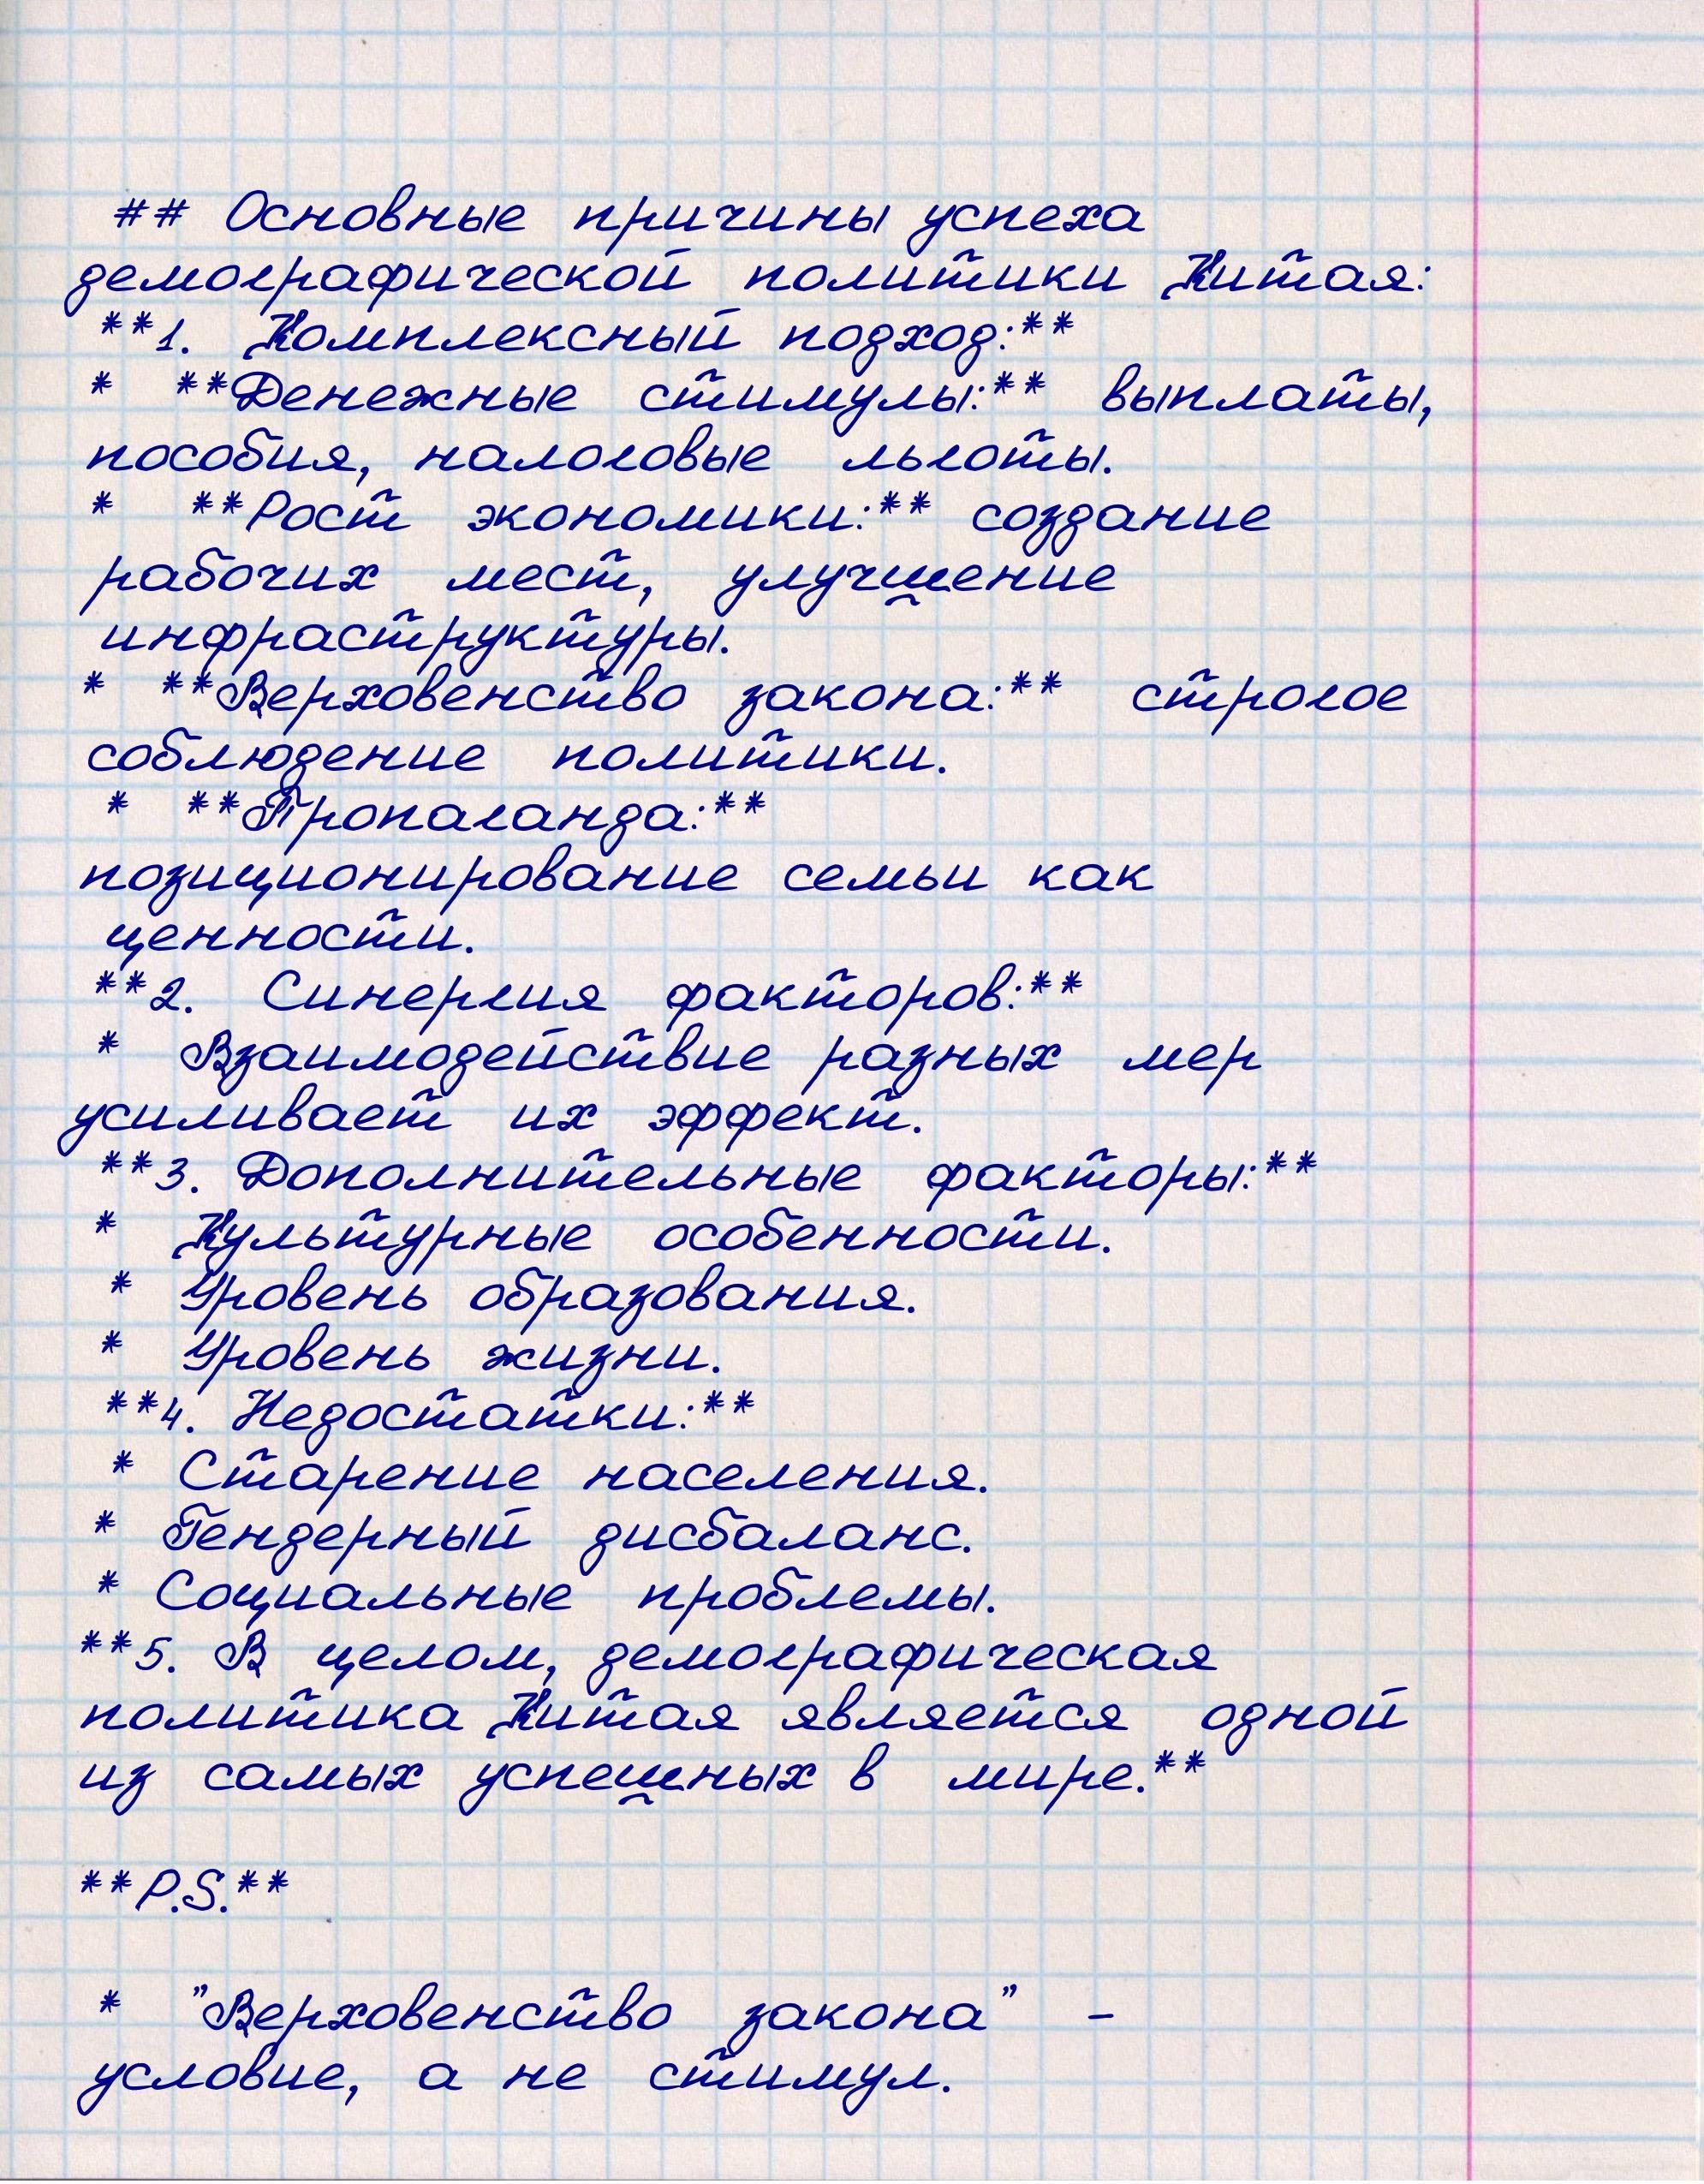 ## Основные причины успеха
демографической политики Китая:
**1. Комплексный подход:**
* **Денежные стимулы:** выплаты,
пособия, налоговые льготы.
* **Рост экономики:** создание
рабочих мест, улучшение
инфраструктуры.
* **Верховенство закона:** строгое
соблюдение политики.
* **Пропаганда:**
позиционирование семьи как
ценности.
**2. Синергия факторов:**
* Взаимодействие разных мер
усиливает их эффект.
**3. Дополнительные факторы:**
* Культурные особенности.
* Уровень образования.
* Уровень жизни.
**4. Недостатки:**
* Старение населения.
* Гендерный дисбаланс.
* Социальные проблемы.
**5. В целом, демографическая
политика Китая является одной
из самых успешных в мире.**
**P.S.**
* "Верховенство закона" -
условие, а не стимул.